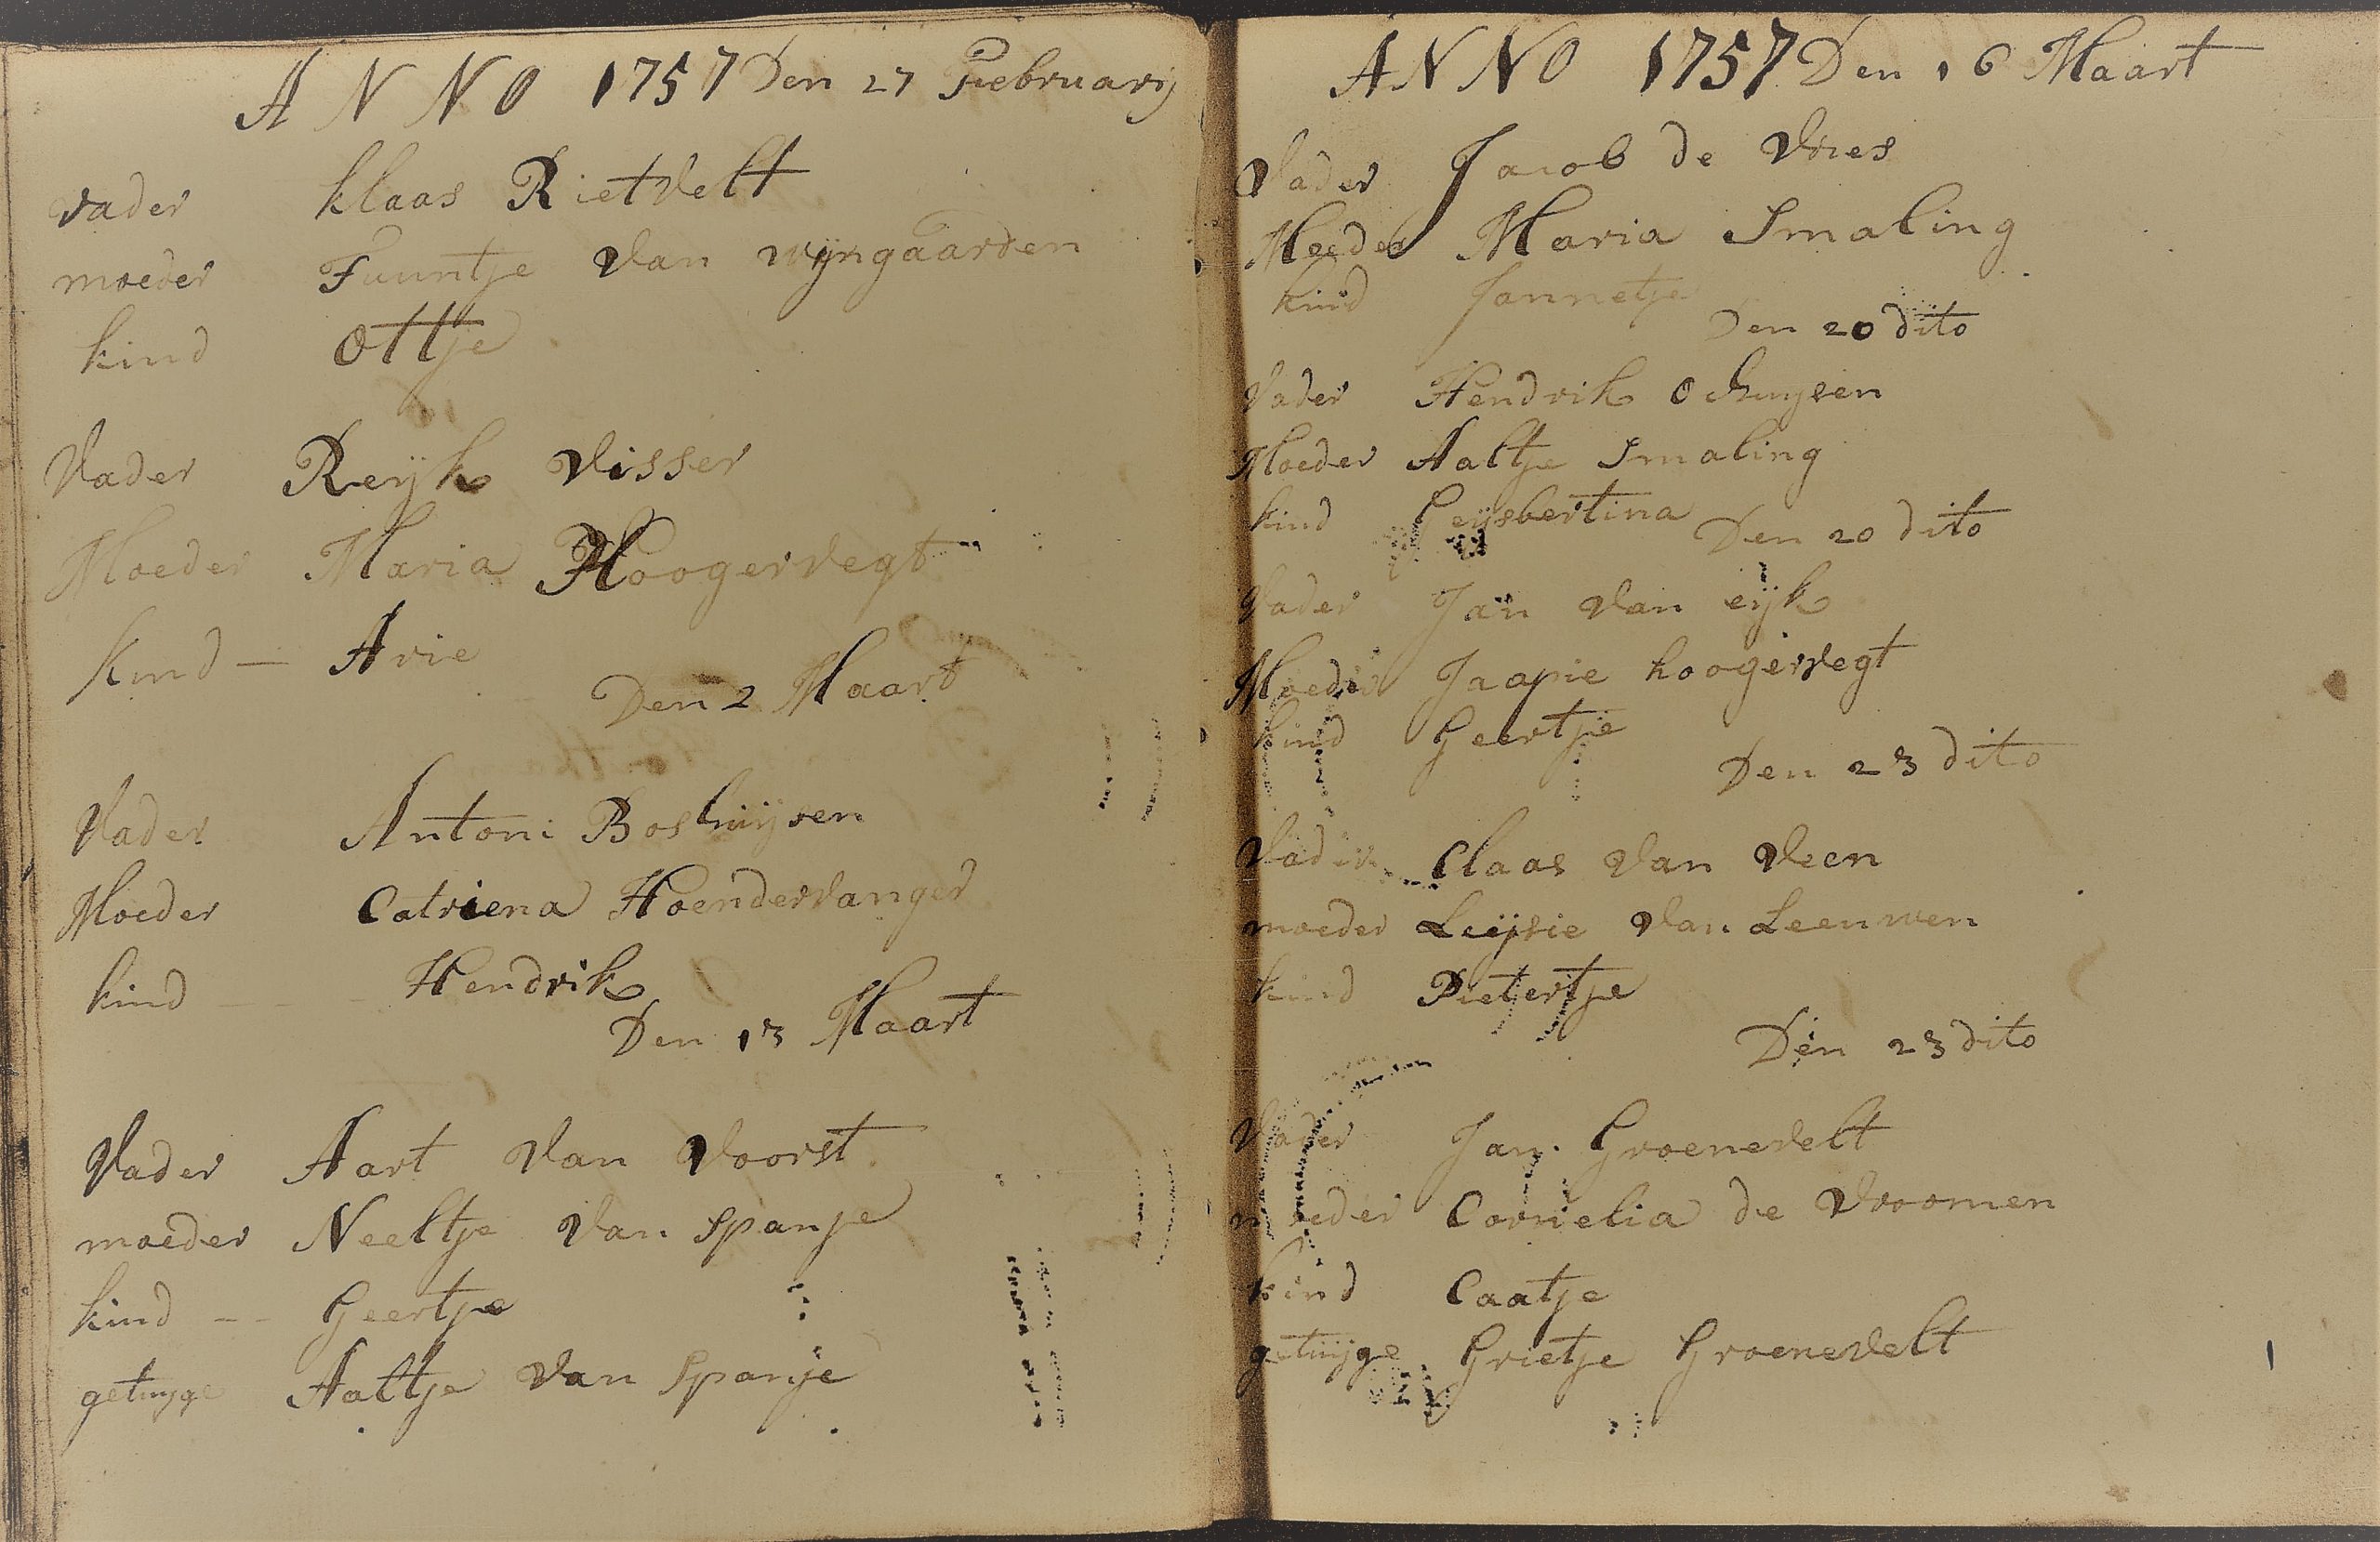 ANNO 1757 Den 27 Februarij
vader klaas Rietvelt
moeder Fuuntje van wijngaarden
kind Ottje
Vader Reijk Visser
Moeder Maria Hoogervegt
Kind — Arie
Den 2 Maart
Vader Antoni Boshuijsen
Moeder Catriena Hoendervanger
kind — Hendrik
Den 13 Maart
Vader Aart Van Voorst
moeder Neeltje Van Spanje
kind -- Geertje
getuijge Aaltje Van Spanje
ANNO 1757 Den 16 Maart
Vader Jacob de Vries
Moeder Maria Smaling
kind Jannetje
Den 20 dito
Vader Hendrik Ochuijsen
Moeder Aaltje Smaling
kind Geijsbertina
Den 20 dito
Vader Jan Van eijk
Moeder Jaapie hoogervegt
kind Geertje
Den 23 dito
Vader Claas Van Veen
moeder Leijsie Van Leeuwen
kind Pietertje
Den 23 dito
Vader Jan Groenevelt
moeder Cornelia de Vroomen
kind Caatje
getuijge Grietje Groenevelt